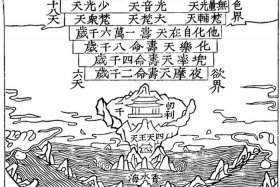 色界
無量光天 光音天 少光天
梵輔天 大梵天 梵眾天
十
天
他化自在天壽一萬六千歲
化樂天壽命八千歲
兜率天壽命四千歲
夜摩天壽命二千歲
欲界
六天
忉利
四天王天
香水海